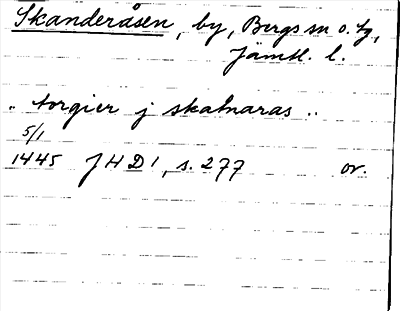 Skanderåsen, by, Bergs sn o. tg,
Jämtl. l.
„ torgier j skalnaras „
5/1
1445 JHD 1, s. 277 or.